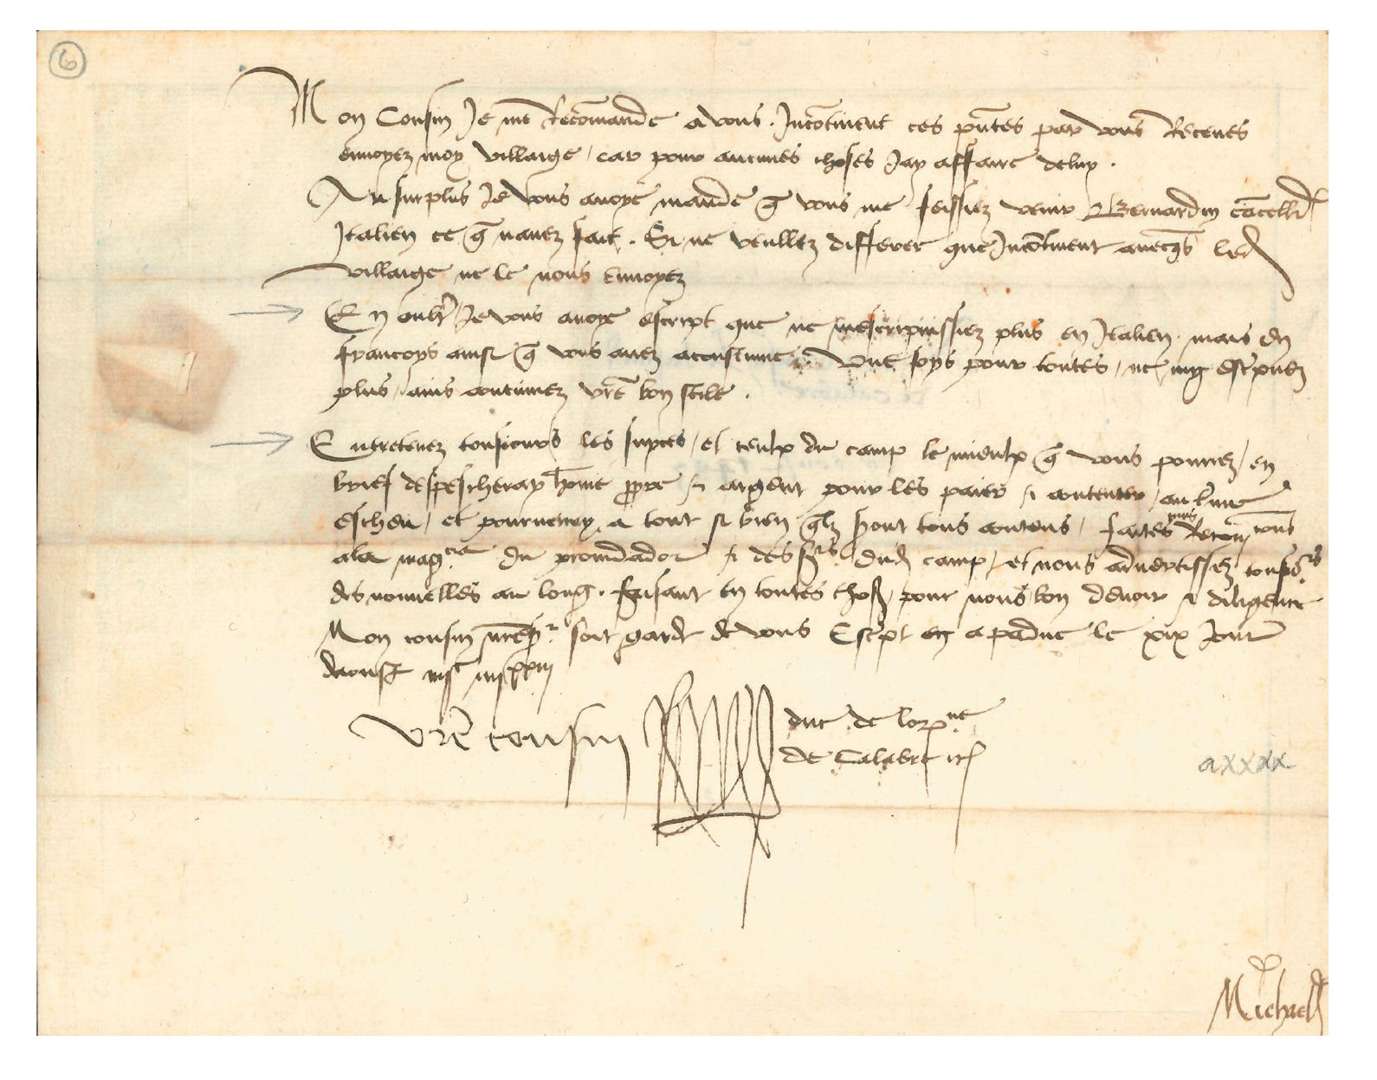 6
Mon Cousin Je me Recōmande a vous. Incōtinent ces pn̄tes par vous Receues
enuoyez moy Villaige, car pour aucunes choses Jay affaire deluy.
Au surplus Je vous auoye mande q̄ vous me feissiez venir Bernardin
Italien ce q̄ nauez fait. Si ne veullez differer que Incōtinent auecqs led
Villaige ne le nous Enuoyez
En oultr Je vous auoye escript que ne mescripuissiez plus en Italien. mais En
francoys ainsi q̄ vous auez acoustume. Vne foys pour toutes, ne my escpuez
plus, ains continuez vrē bon stile.
Entretenez tousiours les et ceulx du camp le mieulx q̄ vous pourrez, en
brief despescheray hōme ppre & argent pour les paier & contenter, au
escheu, et pouruerrey a tout si bien qlz seront tous contens, faites mes Recōn tous
ala mag.cia du prouidador & des srs dud camp, et nous aduertissez tousiors
des nouuelles au long. faisant en toutes choses, pour nous bon deuoir & diligence
Mon cousin nrē sr soit garde de vous Escpt en a padue le xix Jour
daoust
Vrē cousin
duc de lorne
de Calabre
axxxx
Michael